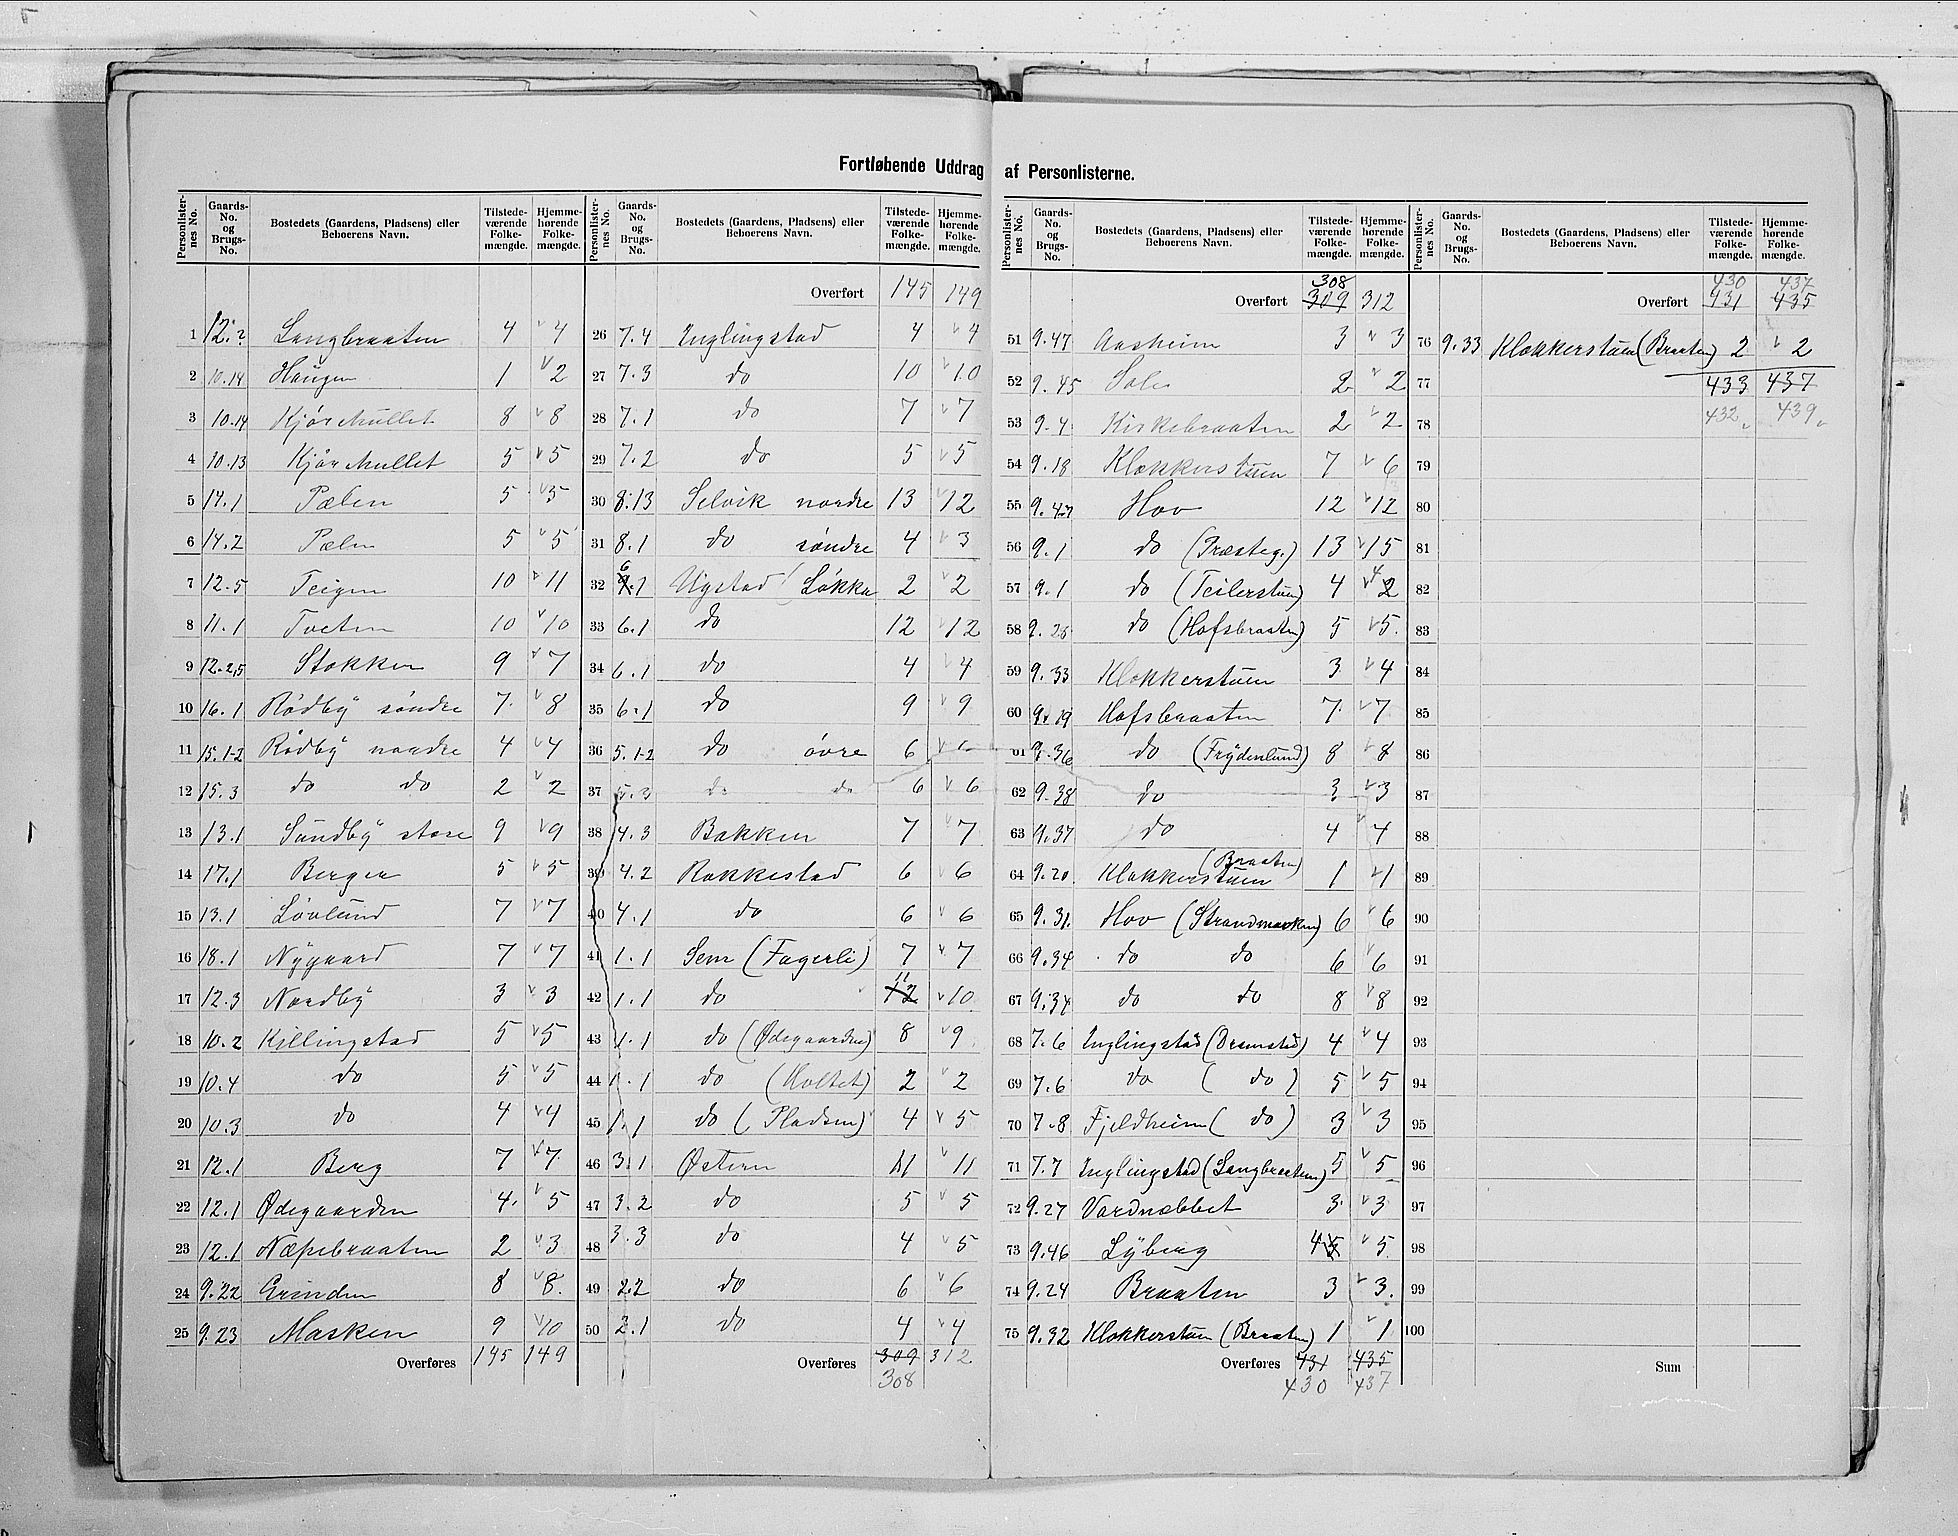 Fortløbende Uddrag af Personlisterne.
Personlisternes No. Gaards-No. og Brugs-No. Bostedets (Gaardens, Pladsens) eller Beboerens Navn. Tilstedeværende Folkemængde. Hjemmehørende Folkemængde.
1 12.2 Langbraaten 4 4
2 10.14 Haugen 1 2
3 10.14 Kjørkullet 8 8
4 10.13 Kjørkullet 5 5
5 14.1 Pælen 5 5
6 14.2 Pælen 5 5
7 12.5 Teigen 10 11
8 11.1 Tveten 10 10
9 12.2,5 Stokken 9 7
10 16.1 Rødby søndre 7 8
11 15.1-2 Rødby nordre 4 4
12 15.3 do do 2 2
13 13.1 Sundby store 9 9
14 17.1 Berger 5 5
15 13.1 Løvlund 7 7
16 18.1 Nygaard 7 7
17 12.3 Nordby 3 3
18 10.2 Killingstad 5 5
19 10.4 do 5 5
20 10.3 do 4 4
21 12.1 Berg 7 7
22 12.1 Ødegaarden 4 5
23 12.1 Næpebraaten 2 3
24 9.22 Grinden 8 8
25 9.23 Masken 9 10
Overføres 145 149
Personlisternes No. Gaards-No. og Brugs-No. Bostedets (Gaardens, Pladsens) eller Beboerens Navn. Tilstedeværende Folkemængde. Hjemmehørende Folkemængde.
Overført 145 149
26 7.4 Inglingstad 4 4
27 7.3 do 10 10
28 7.1 do 7 7
29 7.2 do 5 5
30 8.13 Selvik nordre 13 12
31 8.1 do søndre 4 3
32 6.1 Ugstad (Løkka 2 2
33 6.1 do 12 12
34 6.1 do 4 4
35 6.1 do 9 9
36 5.1-2 do øvre 6 6
37 5.3 do do 6 6
38 4.3 Bakken 7 7
39 4.2 Rakkestad 6 6
40 4.1 do 6 6
41 1.1 Sem (Fagerli) 7 7
42 1.1 do 12 11 10
43 1.1 do (Ødegaarden) 8 9
44 1.1 do (Holtet) 2 2
45 1.1 do (Pladsen) 4 5
46 3.1 Østern 11 11
47 3.2 do 5 5
48 3.3 do 4 5
49 2.2 do 6 6
50 2.1 do 4 4
Overføres 309 312
308
Personlisternes No. Gaards-No. og Brugs-No. Bostedets (Gaardens, Pladsens) eller Beboerens Navn. Tilstedeværende Folkemængde. Hjemmehørende Folkemængde.
308
Overført 309 312
51 9.47 Aasheim 3 3
52 9.45 2 2
53 9.4 Kirkebraaten 2 2
54 9.18 Klokkerstuen 7 6
55 9.47 Hov 12 12
56 9.1 do (Præsteg.) 13 15
57 9.1 do (Teilerstuen) 4 4 2
58 9.28 do (Hofsbraaten) 5 5
59 9.33 Klokkerstuen 3 4
60 9.19 Hofsbraaten 7 7
61 9.36 do (Frydenlund) 8 8
62 9.38 do 3 3
63 9.37 do 4 4
64 9.20 Klokkerstuen (Braaten) 1 1
65 9.31 Hov (Strandmarken) 6 6
66 9.34 do do 6 6
67 9.34 do do 8 8
68 7.6 Inglingstad (Dramstad) 4 4
69 7.6 do (do) 5 5
70 7.8 Fjeldheim (do) 3 3
71 7.7 Inglingstad (Langbraaten) 5 5
72 9.27 Vardnæbbet 3 3
73 9.46 Lyberg 4 5 5
74 9.24 Braaten 3 3
75 9.32 Klokkerstuen (Braaten) 1 1
Overføres 431 435
430 437
Personlisternes No. Gaards-No. og Brugs-No. Bostedets (Gaardens, Pladsens) eller Beboerens Navn. Tilstedeværende Folkemængde. Hjemmehørende Folkemængde.
430 437
Overført 431 435
76 9.33 Klokkerstuen (Braaten) 2 2
77 433 437
78 432 439
79
80
81
82
83
84
85
86
87
88
89
90
91
92
93
94
95
96
97
98
99
100
Sum